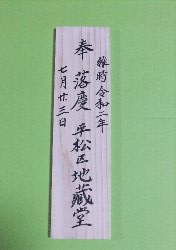 維時 令和二年
奉 落慶 平松区地蔵堂
七月廿三日